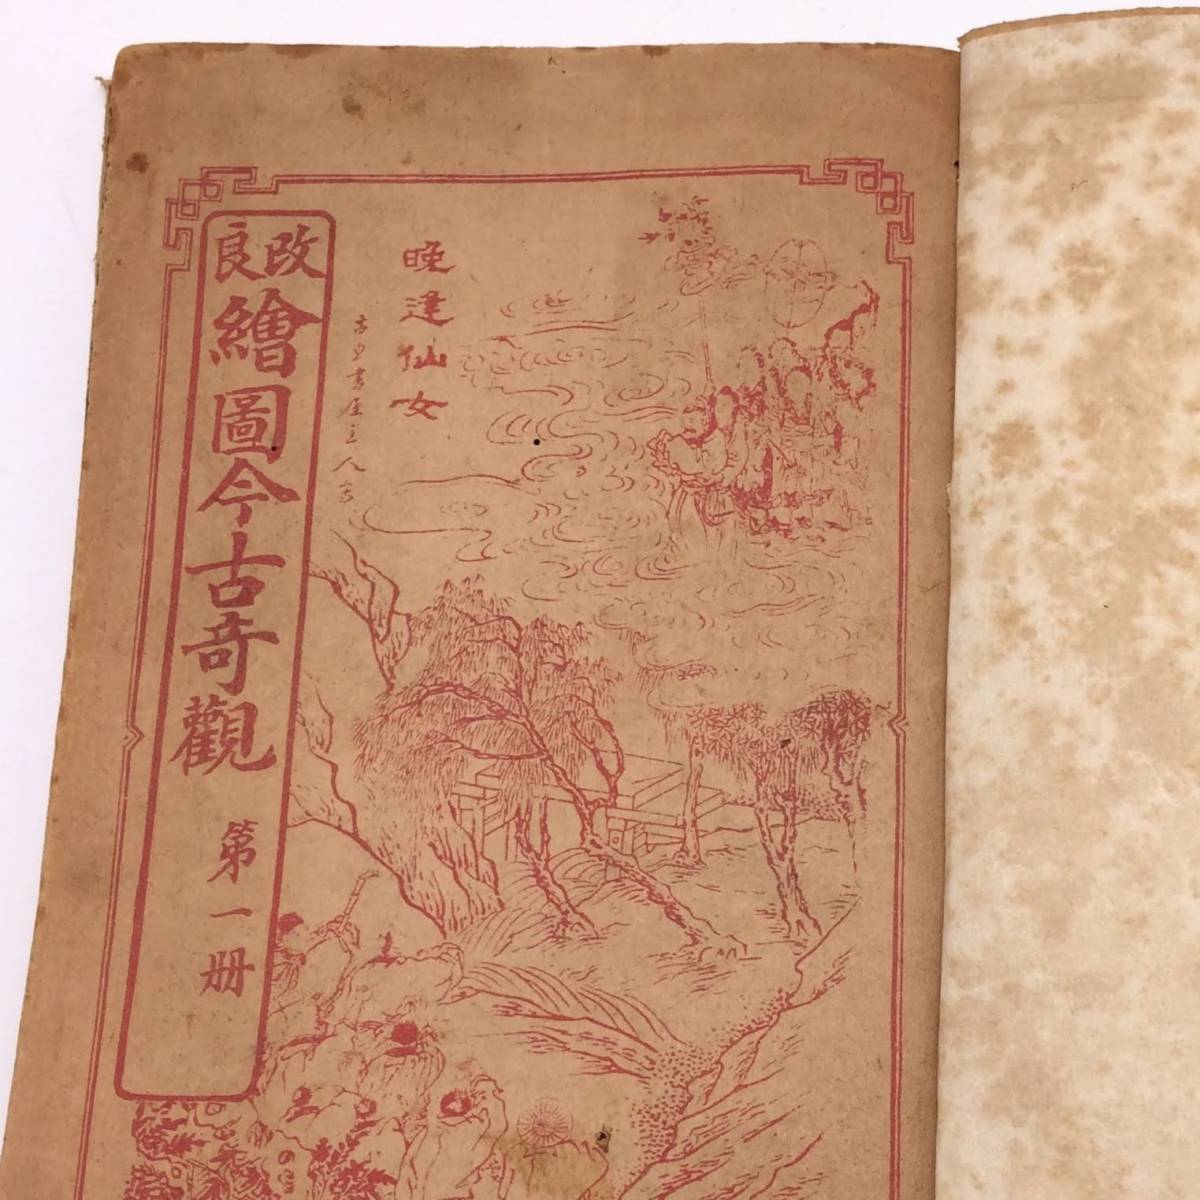 改良
繪圖今古奇觀
第一冊
晚逢仙女
書屋主人